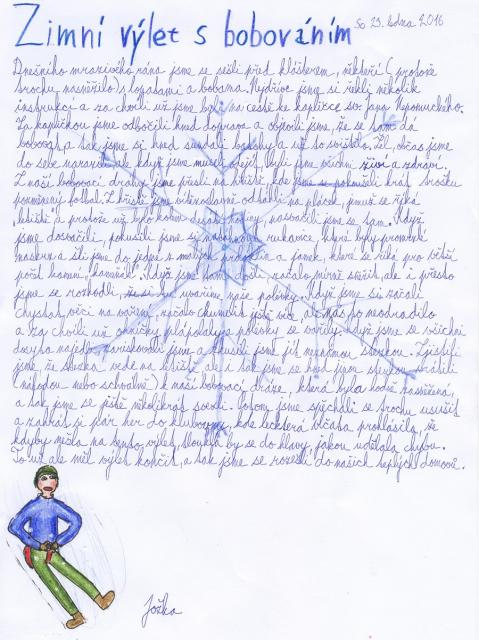 Zimní výlet s bobováním So 23. ledna 2016
Dnešního mrazivého rána jsme se sešli před klášterem, někteří (protože
trochu nasněžilo) s lopatami a bobama. Nejdříve jsme si řekli několik
instrukcí a za chvíli už jsme byli na cestě ke kapličce sv. Jana Nepomuckého.
Za kapličkou jsme odbočili hned doprava a objevili jsme, že se tam dá
bobovat, a tak jsme si hned sundali batohy a už to svištělo. Žel, občas jsme
do sebe narazili, ale když jsme museli odejít, byli jsme všichni živí a zdraví.
Z naší bobovací dráhy jsme přešli na hřiště, kde jsme si pokusili hrát trochu
pozměněný fotbal. Z hřiště jsme odtáhli na plácek, jemuž se říká
"hřiště" a protože už bylo kolem desáté, nasvačili jsme se tam. Když
jsme dosvačili, pokusili jsme si rukavice, které byly proměněné
a šli jsme do jedné z malých a jamek, která se říká pro větší
počet kamení "kameník". Když jsme tam došli, začalo mírně sněžit, ale i přesto
jsme se rozhodli, že si uvaříme naše polévky. Když jsme si začali
chystat věci na vaření, začalo chumelit ještě více, ale nás to neodradilo
a za chvíli už ohníčky plápolaly a polévky se vařily. Když jsme se všichni
dosyta najedli, zariskovali jsme a zkusili jsme jít neznámou stezkou. Zjistili
jsme, že stezka vede na hřiště, ale i tak jsme se hned jinou stezkou vrátili
(náhodou nebo schválně) k naší bobovací dráze, která byla hodně zasněžená,
a tak jsme se ještě několikrát svezli. Potom jsme spěchali se trochu usušit
a zahrát si pár her do klubovny, kde leckterá vlčata prohlásila, že
kdyby nešla na tento výlet, tloukla by se do hlavy, jakou udělala chybu.
To už ale měl výlet končit, a tak jsme se rozešli do našich teplých domovů.
Jožka